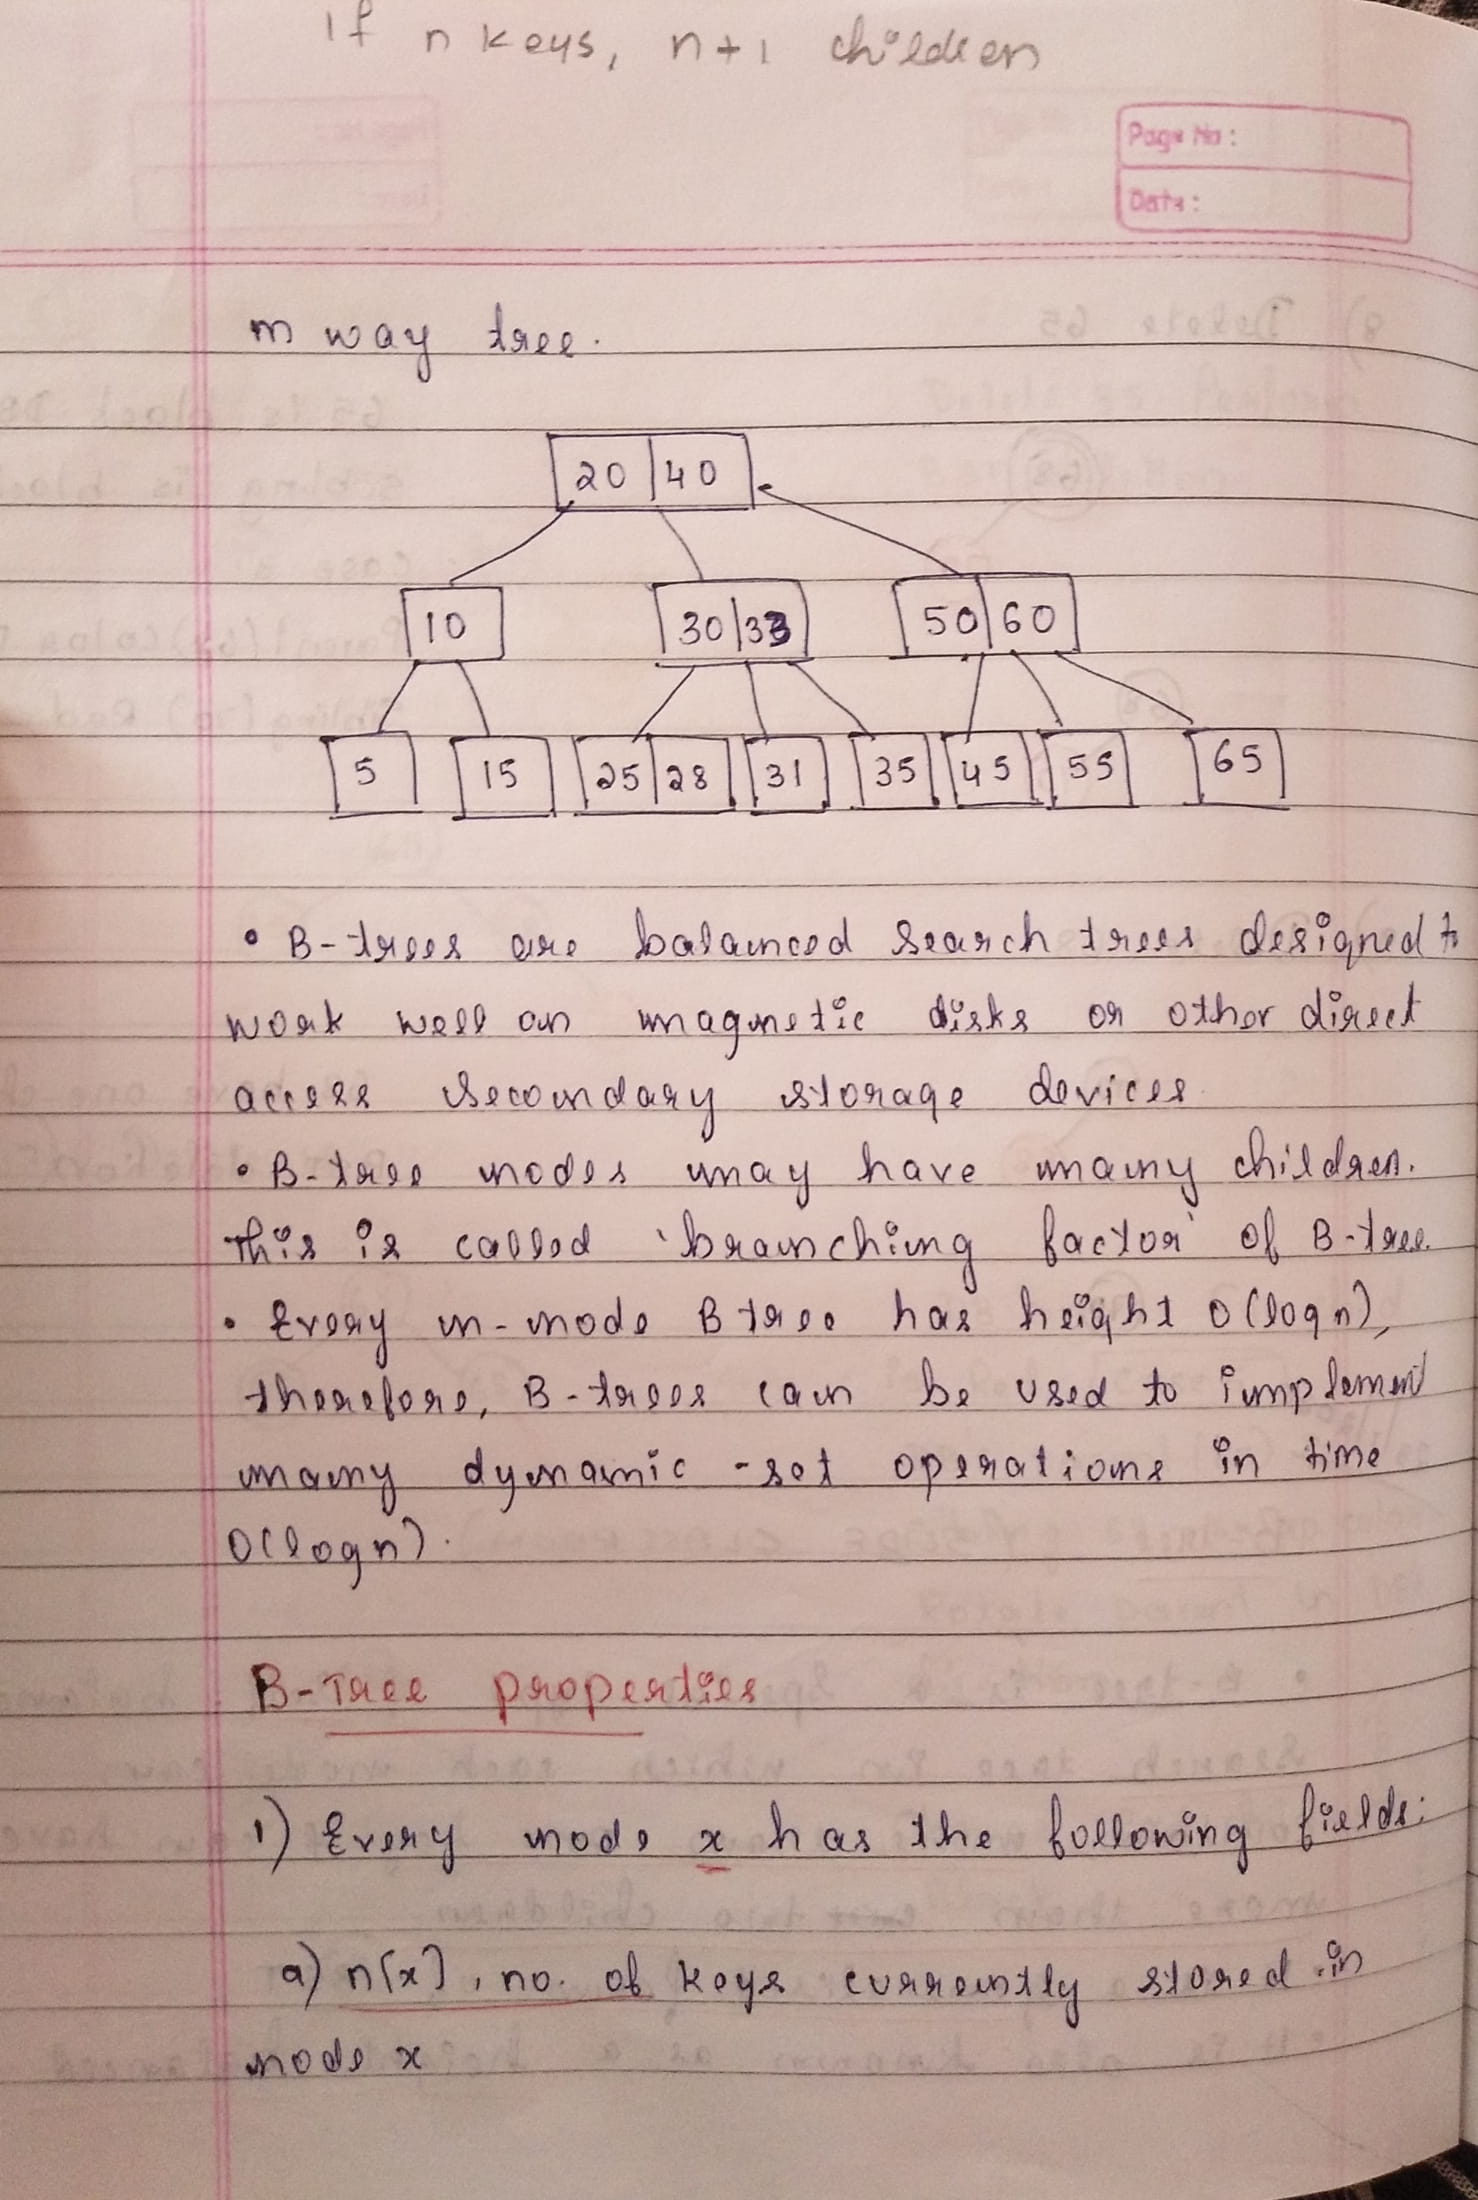 If n keys, n+1 children
Page No:
Date:
m way tree.
20 40
10 30 33 50 60
5 15 25 28 31 35 45 55 65
• B-trees are balanced search trees designed to
work well on magnetic disks or other direct
access secondary storage devices
• B-tree nodes may have many children.
This is called 'branching factor' of B-tree.
• Every n-node B tree has height O(logn),
therefore, B-trees can be used to implement
many dynamic-set operations in time
O(logn).
B-Tree properties
1) Every node x has the following fields:
a) n[x], no. of keys currently stored in
node x